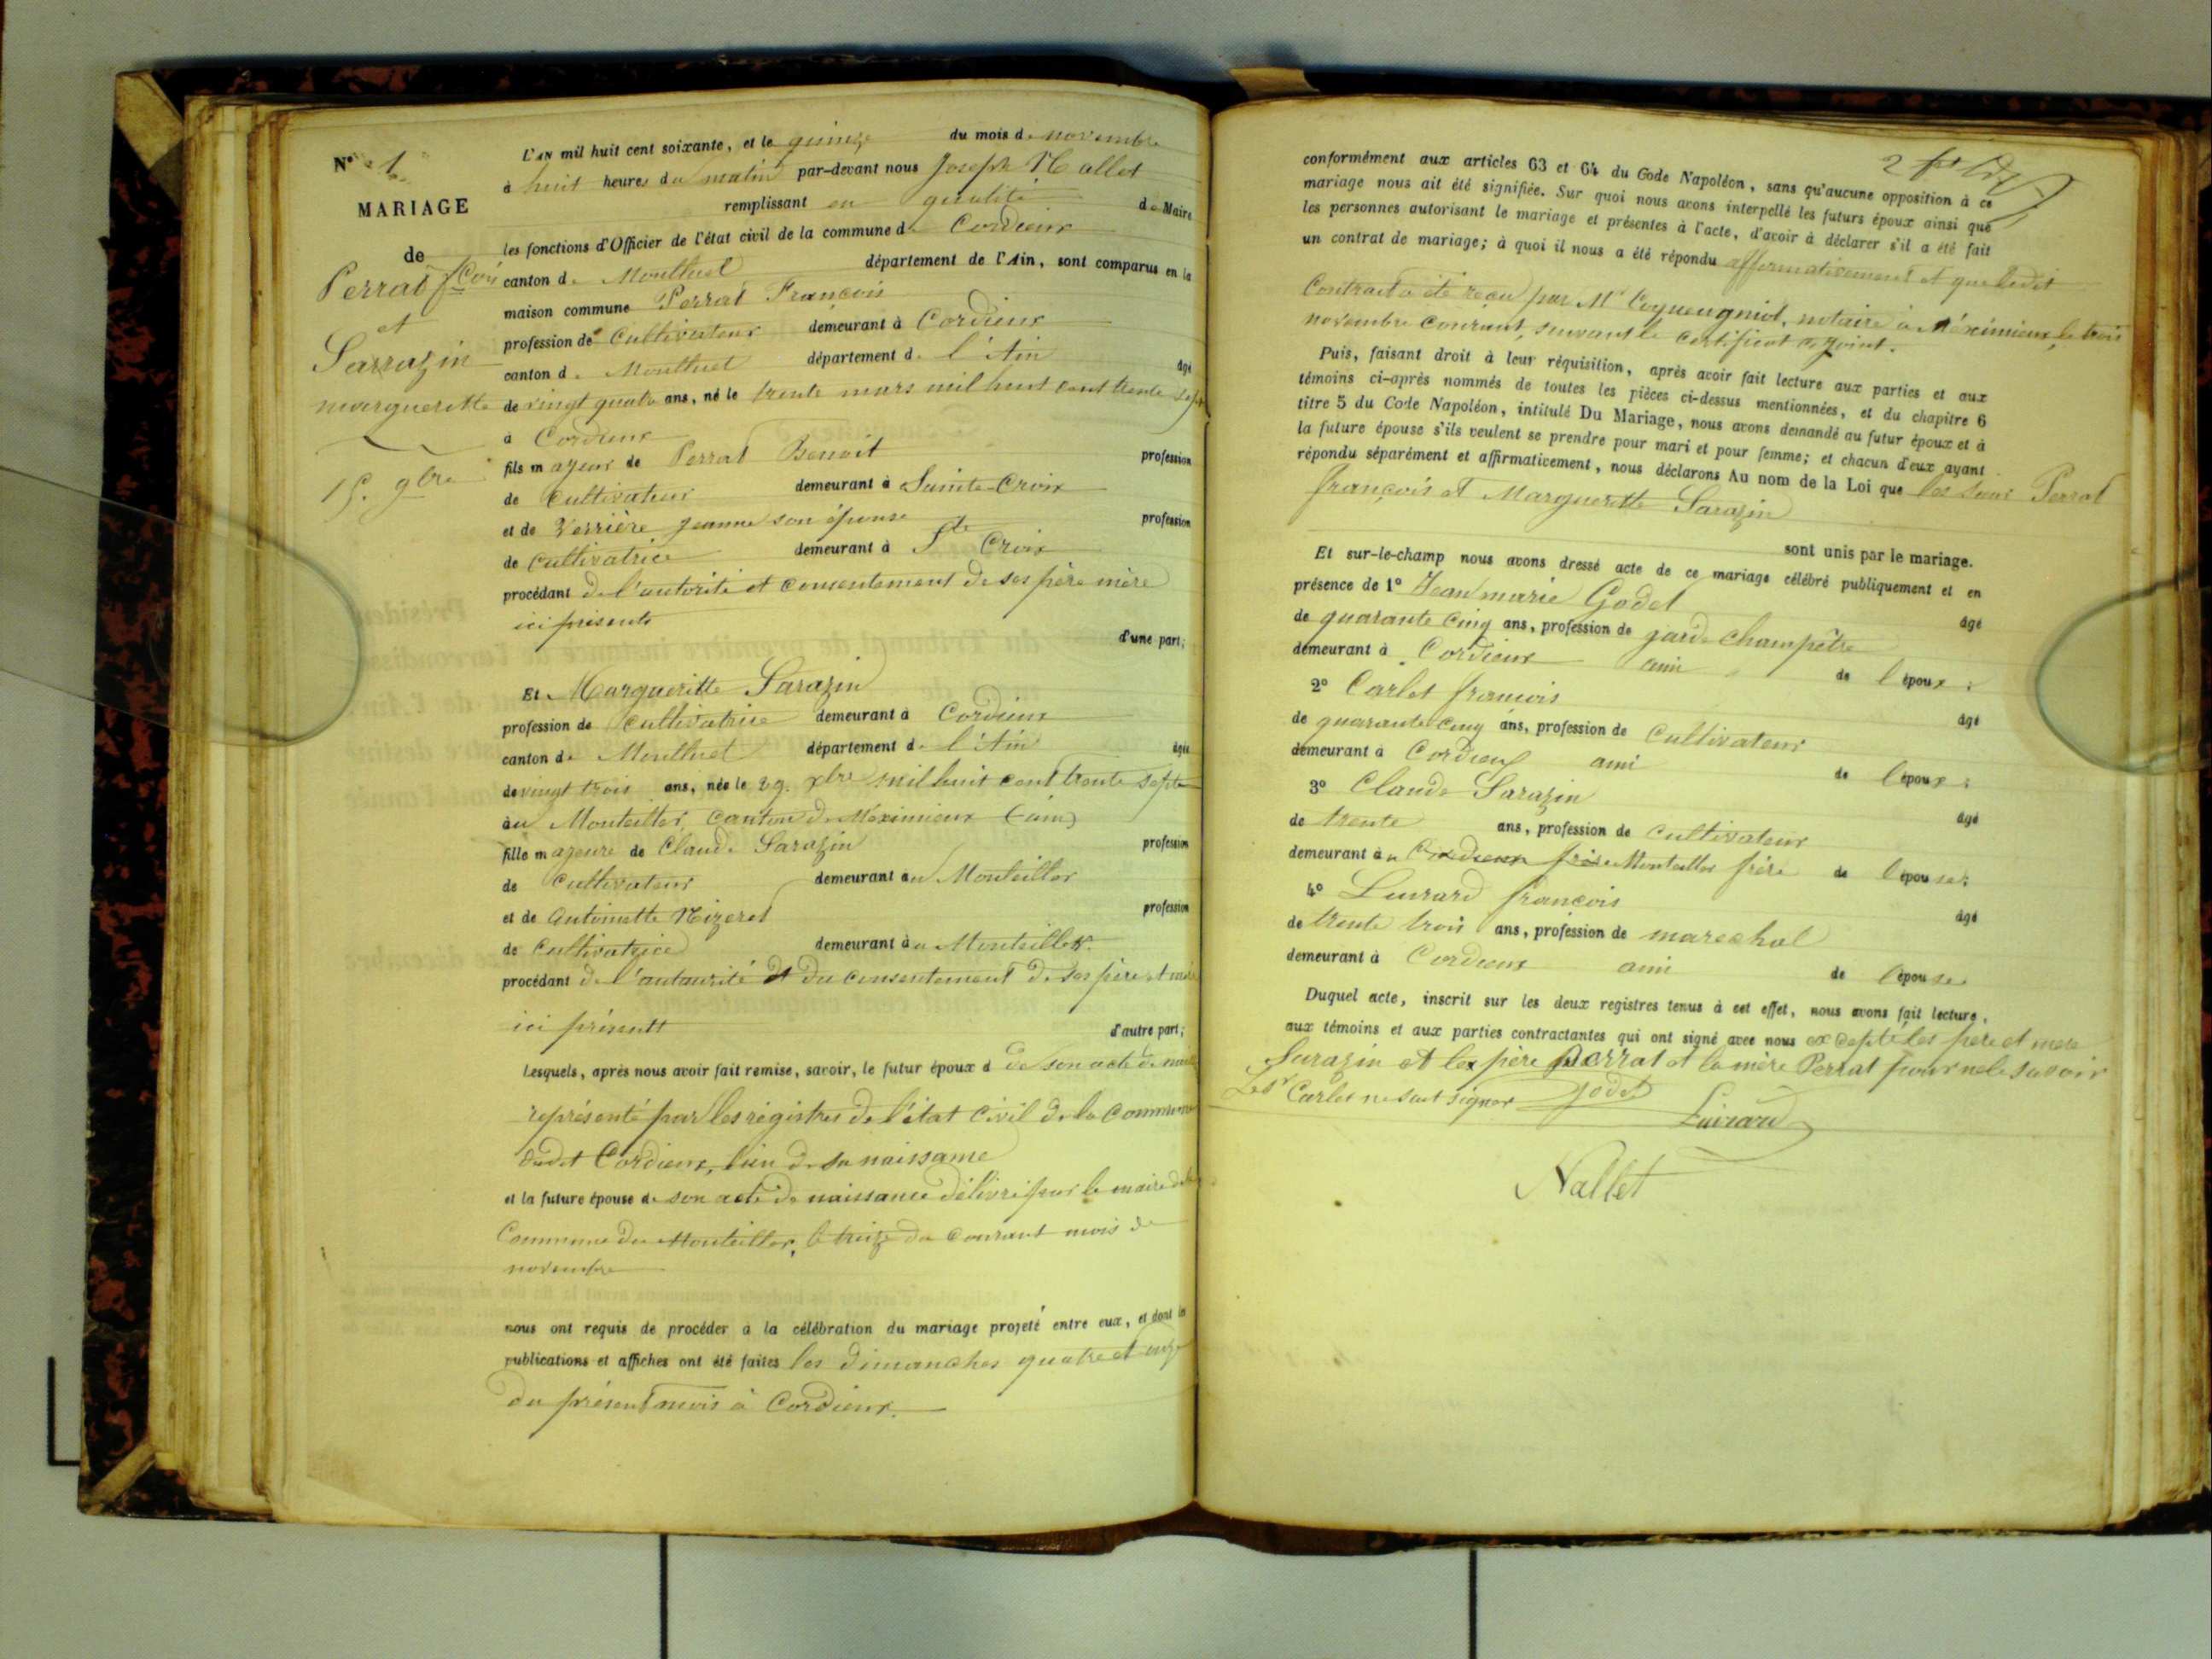 N° 1
MARIAGE
de
Perrat fcois
et
Sarrazin
marguerette
15. 9bre
L'AN mil huit cent soixante, et le quinze du mois de novembre
à huit heures du matin par-devant nous Joseph Nallet
remplissant en qualité de Maire
les fonctions d'Officier de l'état civil de la commune de Cordieux
canton de Montluel département de l'Ain, sont comparus en la
maison commune Perrat François
profession de Cultivateur demeurant à Cordieux
canton de Montluel département de l'Ain âgé
de vingt quatre ans, né le trente mars mil huit cent trente sept
à Cordieux
fils majeur de Perrat Benoit profession
de Cultivateur demeurant à Sainte-Croix
et de Verrière jeanne son épouse profession
de Cultivatrice demeurant à Ste Croix
procédant de l'autorité et consentement de ses père mère
ici présents
d'une part;
Et Margueritte Sarazin
profession de Cultivatrice demeurant à Cordieux
canton de Montluel département de l'Ain âgée
de vingt trois ans, née le 29. xbre mil huit cent trente sept
au Montellier, Canton de Méximieux (ain)
fille majeure de Claude Sarazin profession
de Cultivateur demeurant au Monteiller
et de Antoinette Nizeret profession
de Cultivatrice demeurant au Monteiller.
procédant de l'autaurité et du consentement de ses père et mère
ici présentt
d'autre part;
Lesquels, après nous avoir fait remise, savoir, le futur époux d de son acte de
représenté par les régistres de l'état Civil de la Commune
dudit Cordieux, lieu de sa naissance
et la future épouse de son acte de naissance délivré par le maire de la
Commune du Monteiller, le treize du Courant mois de
novembre
nous ont requis de procéder à la célébration du mariage projeté entre eux, et dont les
publications et affiches ont été faites les dimanches quatre et onze
du présent mois à Cordieux.
conformément aux articles 63 et 64 du Code Napoléon, sans qu'aucune opposition à ce
mariage nous ait été signifiée. Sur quoi nous avons interpellé les futurs époux ainsi que
les personnes autorisant le mariage et présentes à l'acte, d'avoir à déclarer s'il a été fait
un contrat de mariage; à quoi il nous a été répondu affirmativement et que ledit
Contrat a été reçu par Me Coqueugniot, notaire à Méximieux, le trois
novembre Courant, suivant le Certificat cy joint.
Puis, faisant droit à leur réquisition, après avoir fait lecture aux parties et aux
témoins ci-après nommés de toutes les pièces ci-dessus mentionnées, et du chapitre 6
titre 5 du Code Napoléon, intitulé Du Mariage, nous avons demandé au futur époux et à
la future épouse s'ils veulent se prendre pour mari et pour femme; et chacun d'eux ayant
répondu séparément et affirmativement, nous déclarons Au nom de la Loi que les Perrat
françois et Marguerette Sarazin
sont unis par le mariage.
Et sur-le-champ nous avons dressé acte de ce mariage célébré publiquement et en
présence de 1° Jean marie Godet âgé
de quarante cinq ans, profession de garde Champêtre
demeurant à Cordieux ami de l'époux;
2° Carlet francois âgé
de quarante cinq ans, profession de Cultivateur
demeurant à Cordieux ami de l'époux;
3° Claude Sarazin âgé
de trente ans, profession de Cultivateur
demeurant au Cordieux frère Monteiller frère de l'épouse;
4° Luirard françois âgé
de trente trois ans, profession de marechal
demeurant à Cordieux ami de l'épouse
Duquel acte, inscrit sur les deux registres tenus à cet effet, nous avons fait lecture,
aux témoins et aux parties contractantes qui ont signé avec nous exsepté les père et mere
Sarazin et les père perrat et la mère Perrat pour ne le savoir
Carlet ne sait signer Godet
Luirard
Nallet